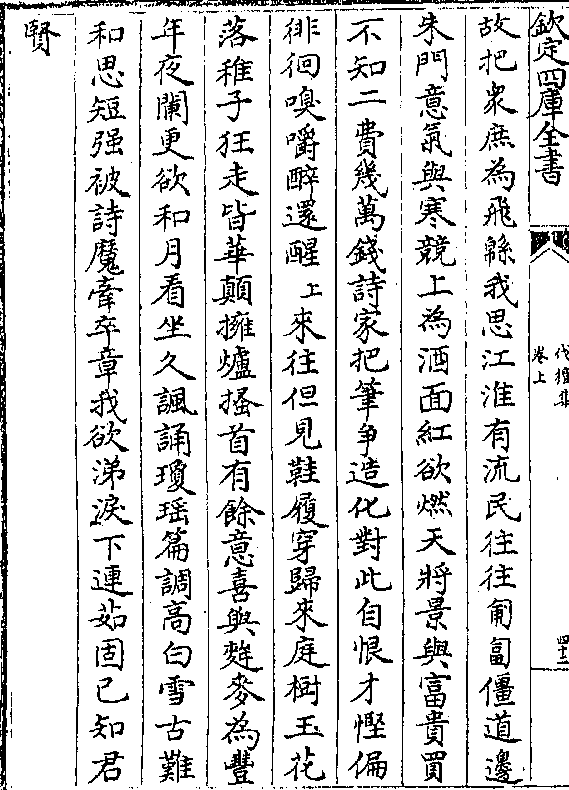 欽定四庫全書
代檀集
卷上
四十二
故把衆庶為飛緜我思江淮有流民往往匍匐僵道邊
朱門意氣與寒競上為酒面紅欲燃天將景與富貴買
不知二費幾萬錢詩家把筆爭造化對此自恨才慳偏
徘徊嗅嚼醉還醒上來往但見鞋履穿歸來庭樹玉花
落稚子狂走皆華顛擁爐搔首有餘意喜與麰麥為豐
年夜闌更欲和月看坐久諷誦瓊瑶篇調高白雪古難
和思短强被詩魔牽卒章我欲涕淚下連茹固已知君
賢